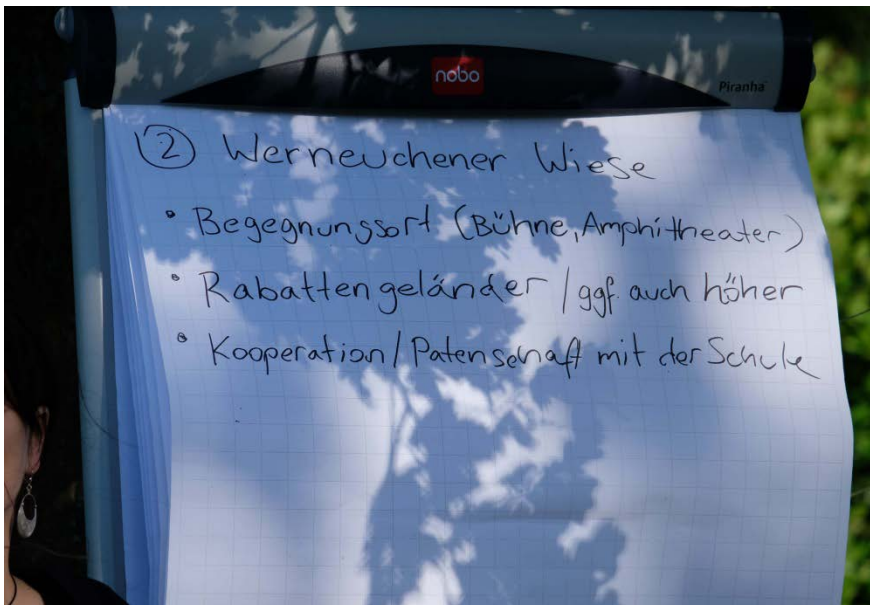 nobo
Piranha
② Werneuchener Wiese
• Begegnungsort (Bühne, Amphitheater)
• Rabattengeländer / ggf. auch höher
• Kooperation / Patenschaft mit der Schule